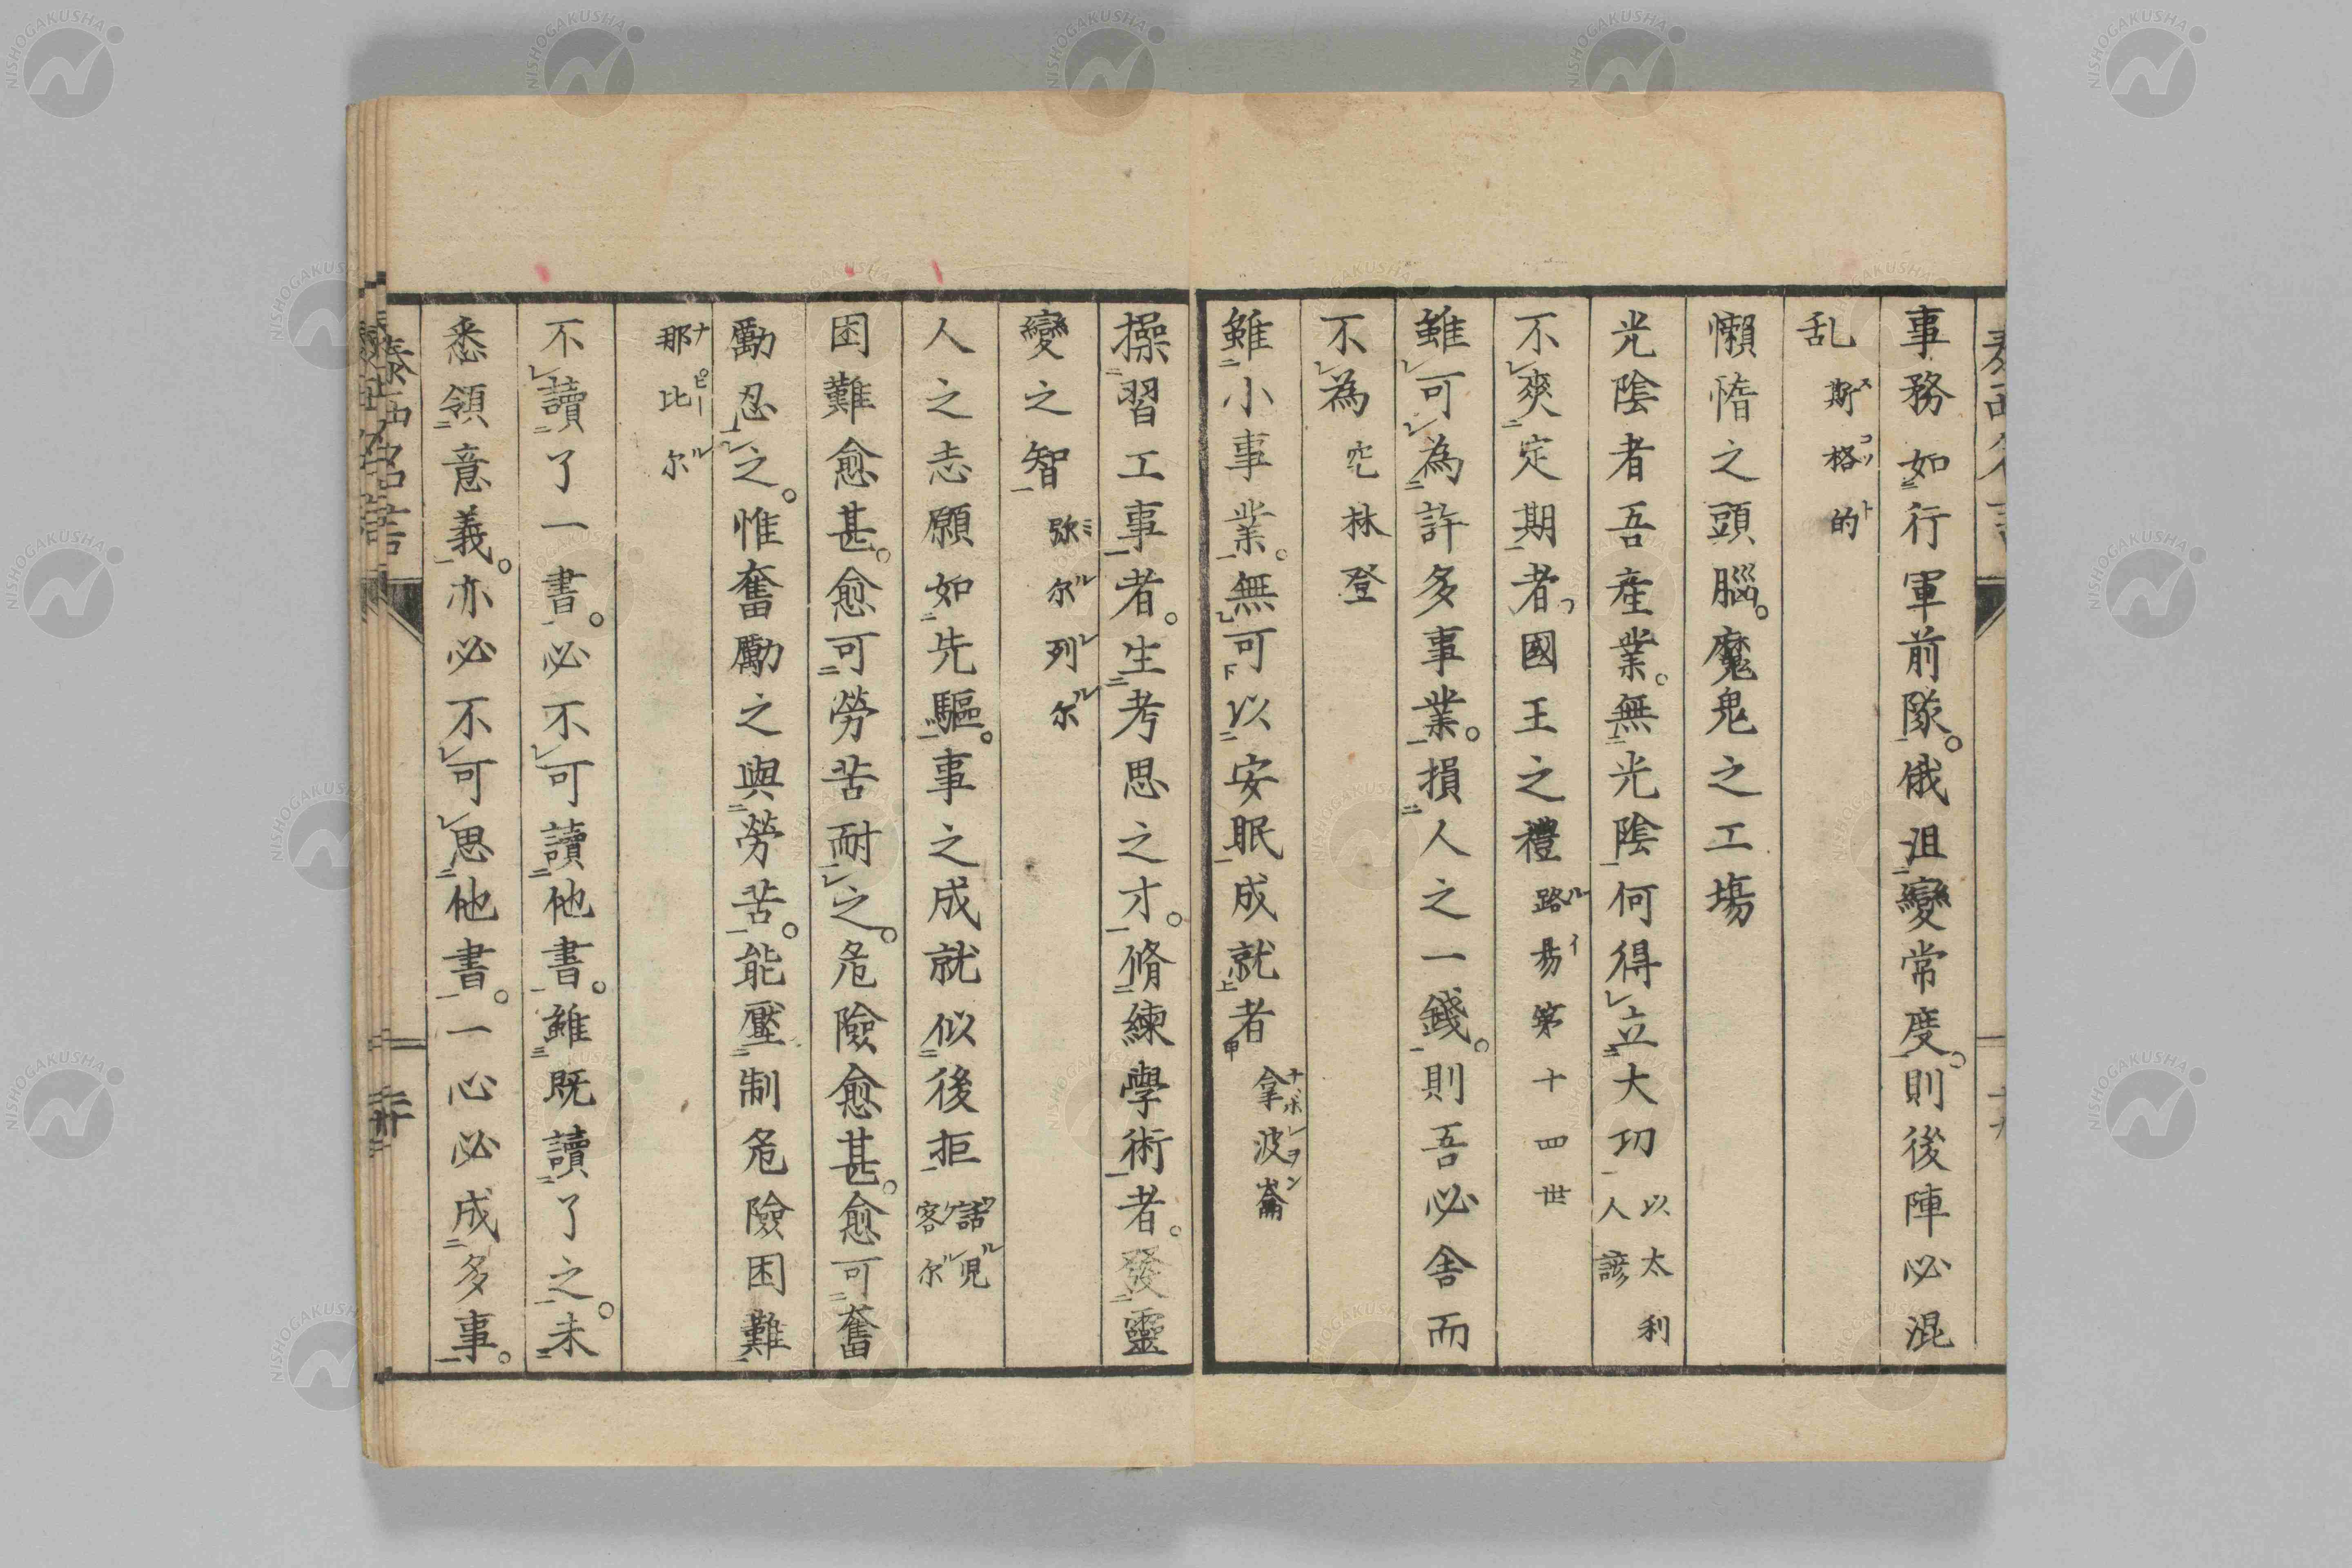 事務如行軍前隊。俄沮變常度。則後陣必混
乱 斯格的
懶惰之頭腦。魔鬼之工塲
光陰者吾産業。無光陰何得立大功 以太利人諺
不爽定期者。國王之禮 路易第十四世
雖可為許多事業。損人之一錢。則吾必舎而
不為 窊林登
雖小事業。無可以安眠成就者 拿波崙
操習工事者。生考思之才。脩練學術者。發靈
變之智 弥尔列尔
人之志願如先驅。事之成就似後拒 話児客尔
困難愈甚。愈可勞苦耐之。危險愈甚。愈可奮
勵忍之。惟奮勵之與勞苦。能壓制危險困難
那比尔
不讀了一書。必不可讀他書。雖既讀了之。未
悉領意義。亦必不可思他書。一心必成多事。
泰西名言
二十
NISHOGAKUSHA